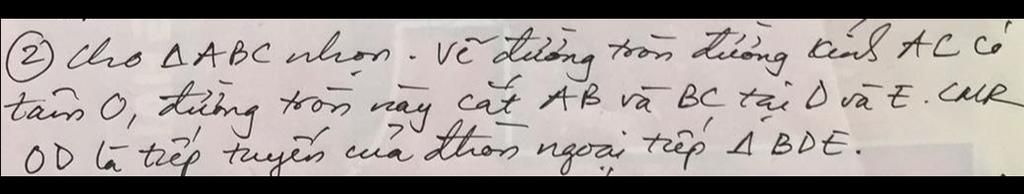 ② Cho ΔABC nhọn. Vẽ đường tròn đường kính AC có
tâm O, đường tròn này cắt AB và BC tại D và E. CMR
OD là tiếp tuyến của đtròn ngoại tiếp Δ BDE.